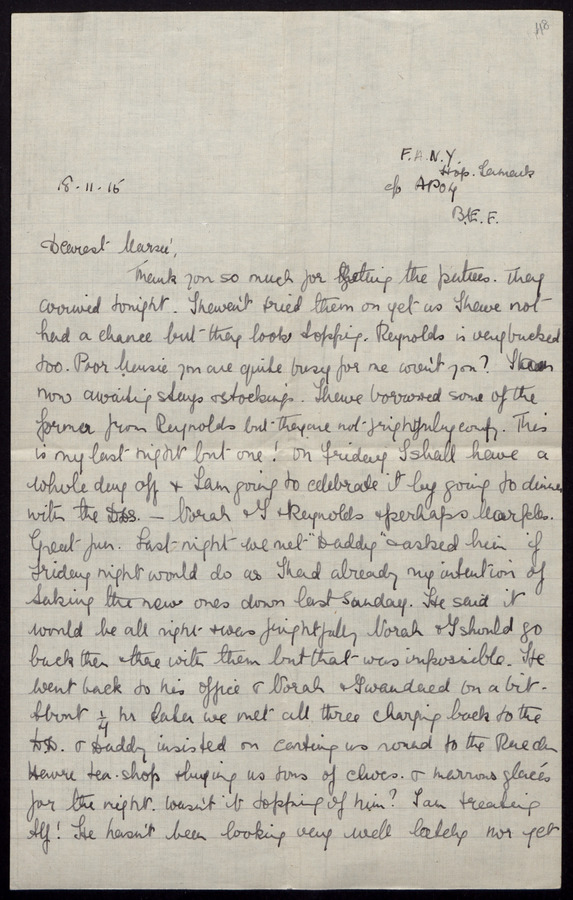 118
F.A.N.Y.
Hop. Lamark
18-11-15
c/o APO4
B.E.F.
Dearest Marsie,
Thank you so much for getting the puttees. They
arrived tonight. I haven't tried them on yet as I have not
had a chance but they look topping. Reynolds is very bucked
too. Poor Marsie you are quite busy for me aren't you? I am
now awaiting stays & stockings. I have borrowed some of the
former from Reynolds but they are not frightfully comfy. This
is my last night but one! On Friday I shall have a
whole day off & I am going to celebrate it by going to dinner
with the — Norah & I & Reynolds & perhaps Marples.
Great fun. Last night we met "Daddy" & asked him if
Friday night would do as I had already my intention of
taking the new ones down last Sunday. He said it
would be all right & was frightfully Norah & I should go
back then & there with them but that was impossible. He
went back to his office & Norah & I wandered on a bit.
About ¼ hr later we met all three charging back to the
& Daddy insisted on carting us round to the Rue du
Havre tea-shop & buying us tons of chocs. & marrons glacés
for the night. Wasn't it topping of him? I am treating
Alf! He hasn't been looking very well lately nor yet